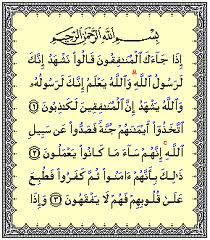 بِسْمِ ٱللَّهِ ٱلرَّحْمَٰنِ ٱلرَّحِيمِ
إِذَا جَآءَكَ ٱلْمُنَٰفِقُونَ قَالُوا۟ نَشْهَدُ إِنَّكَ
لَرَسُولُ ٱللَّهِ ۗ وَٱللَّهُ يَعْلَمُ إِنَّكَ لَرَسُولُهُۥ
وَٱللَّهُ يَشْهَدُ إِنَّ ٱلْمُنَٰفِقِينَ لَكَٰذِبُونَ ١
ٱتَّخَذُوٓا۟ أَيْمَٰنَهُمْ جُنَّةً فَصَدُّوا۟ عَن سَبِيلِ
ٱللَّهِ ۚ إِنَّهُمْ سَآءَ مَا كَانُوا۟ يَعْمَلُونَ ٢
ذَٰلِكَ بِأَنَّهُمْ ءَامَنُوا۟ ثُمَّ كَفَرُوا۟ فَطُبِعَ
عَلَىٰ قُلُوبِهِمْ فَهُمْ لَا يَفْقَهُونَ ٣ وَإِذَا